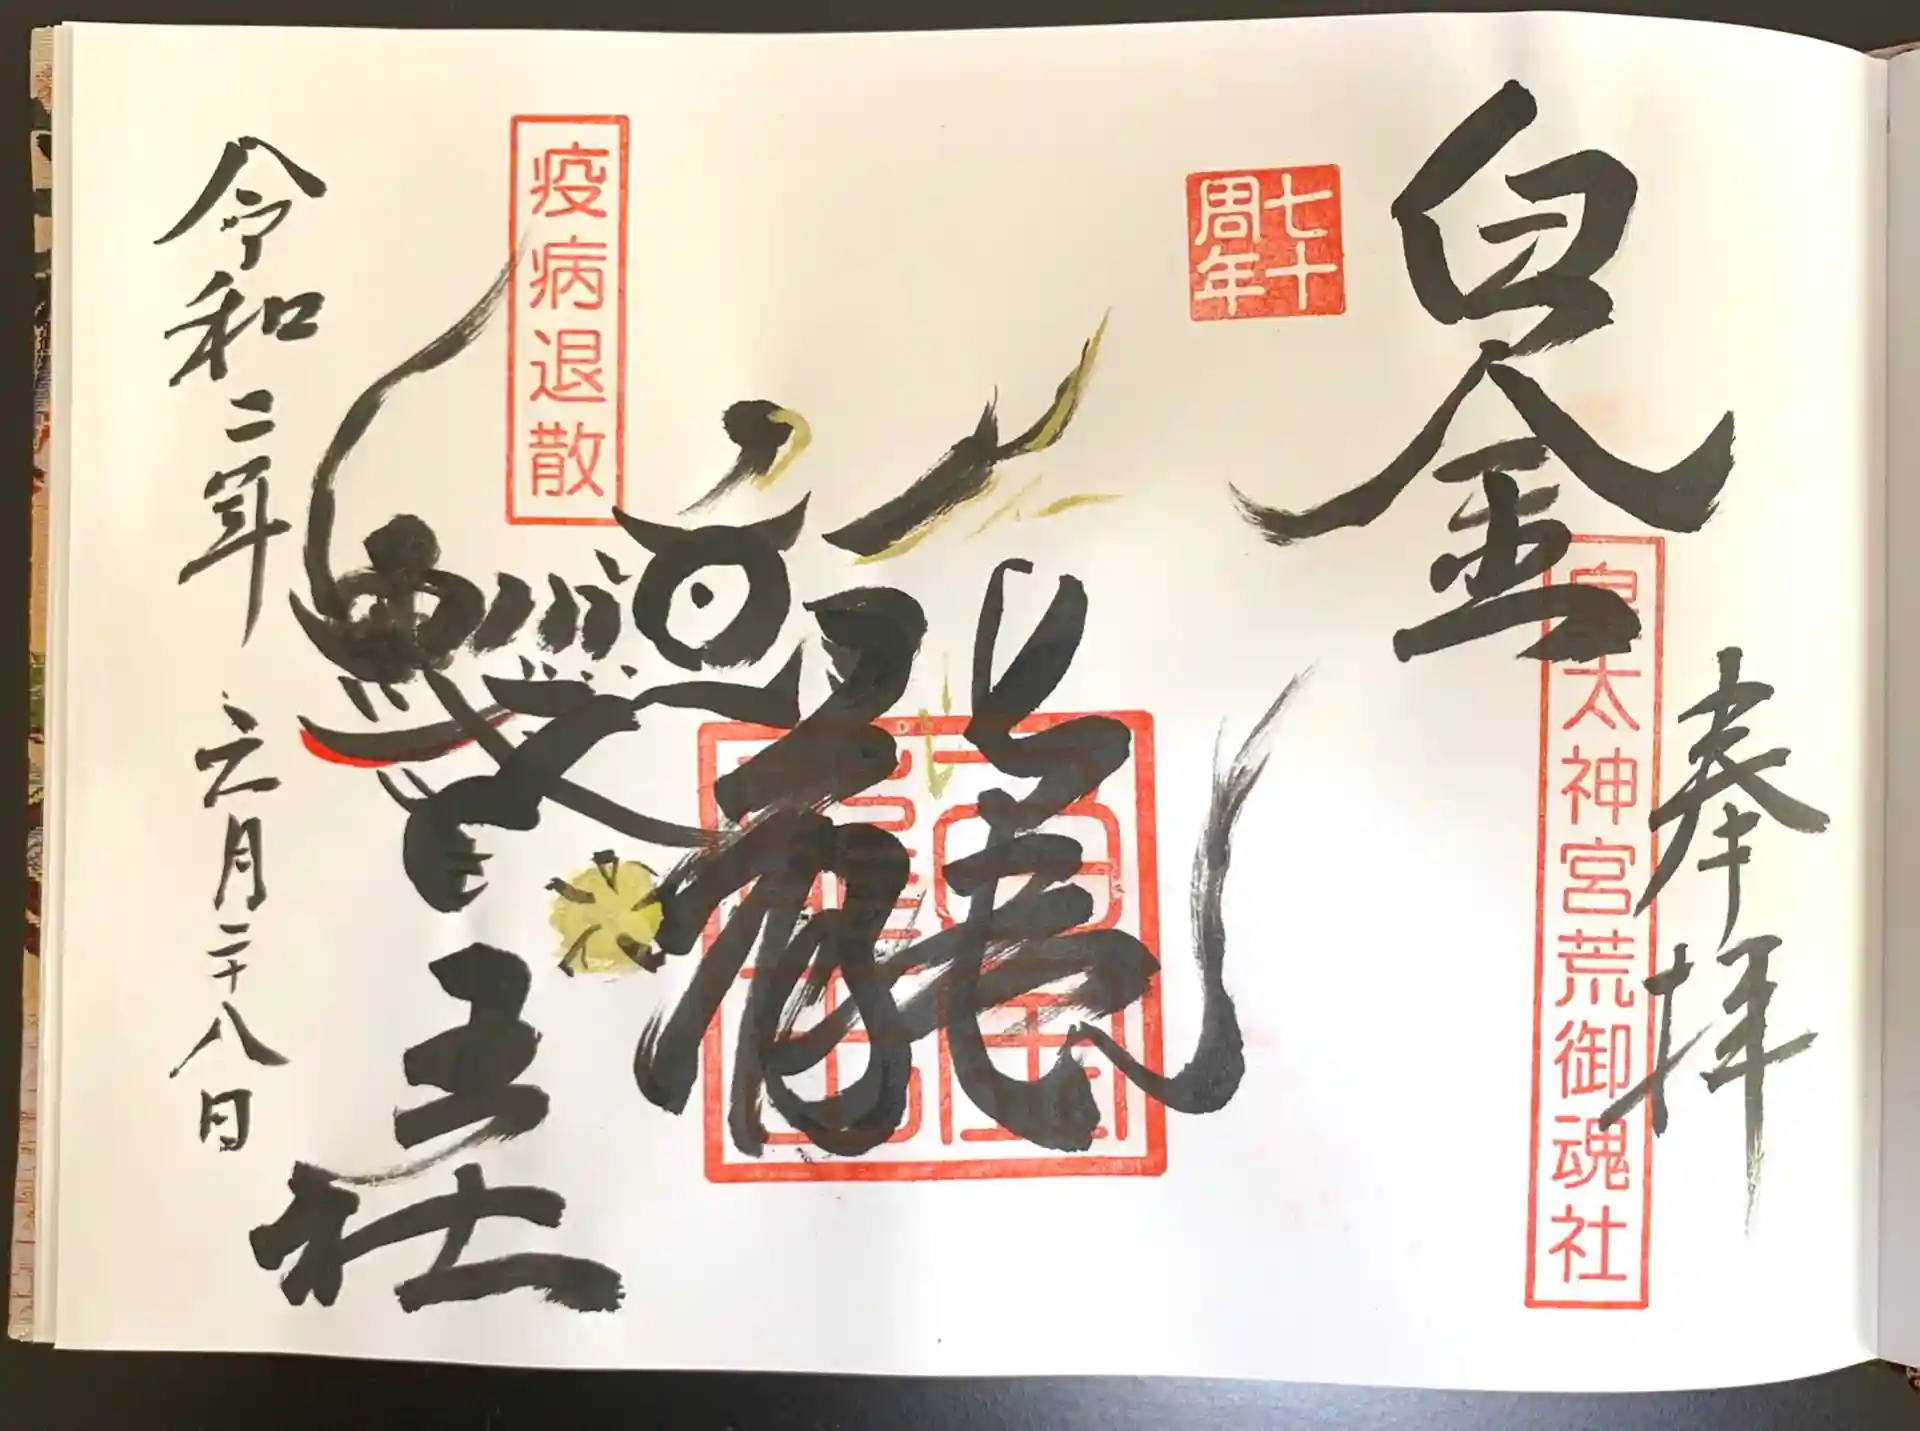 奉拝
皇太神宮荒御魂社
白金
七十
周年
龍
王社
疫病退散
令和二年 六月二十八日